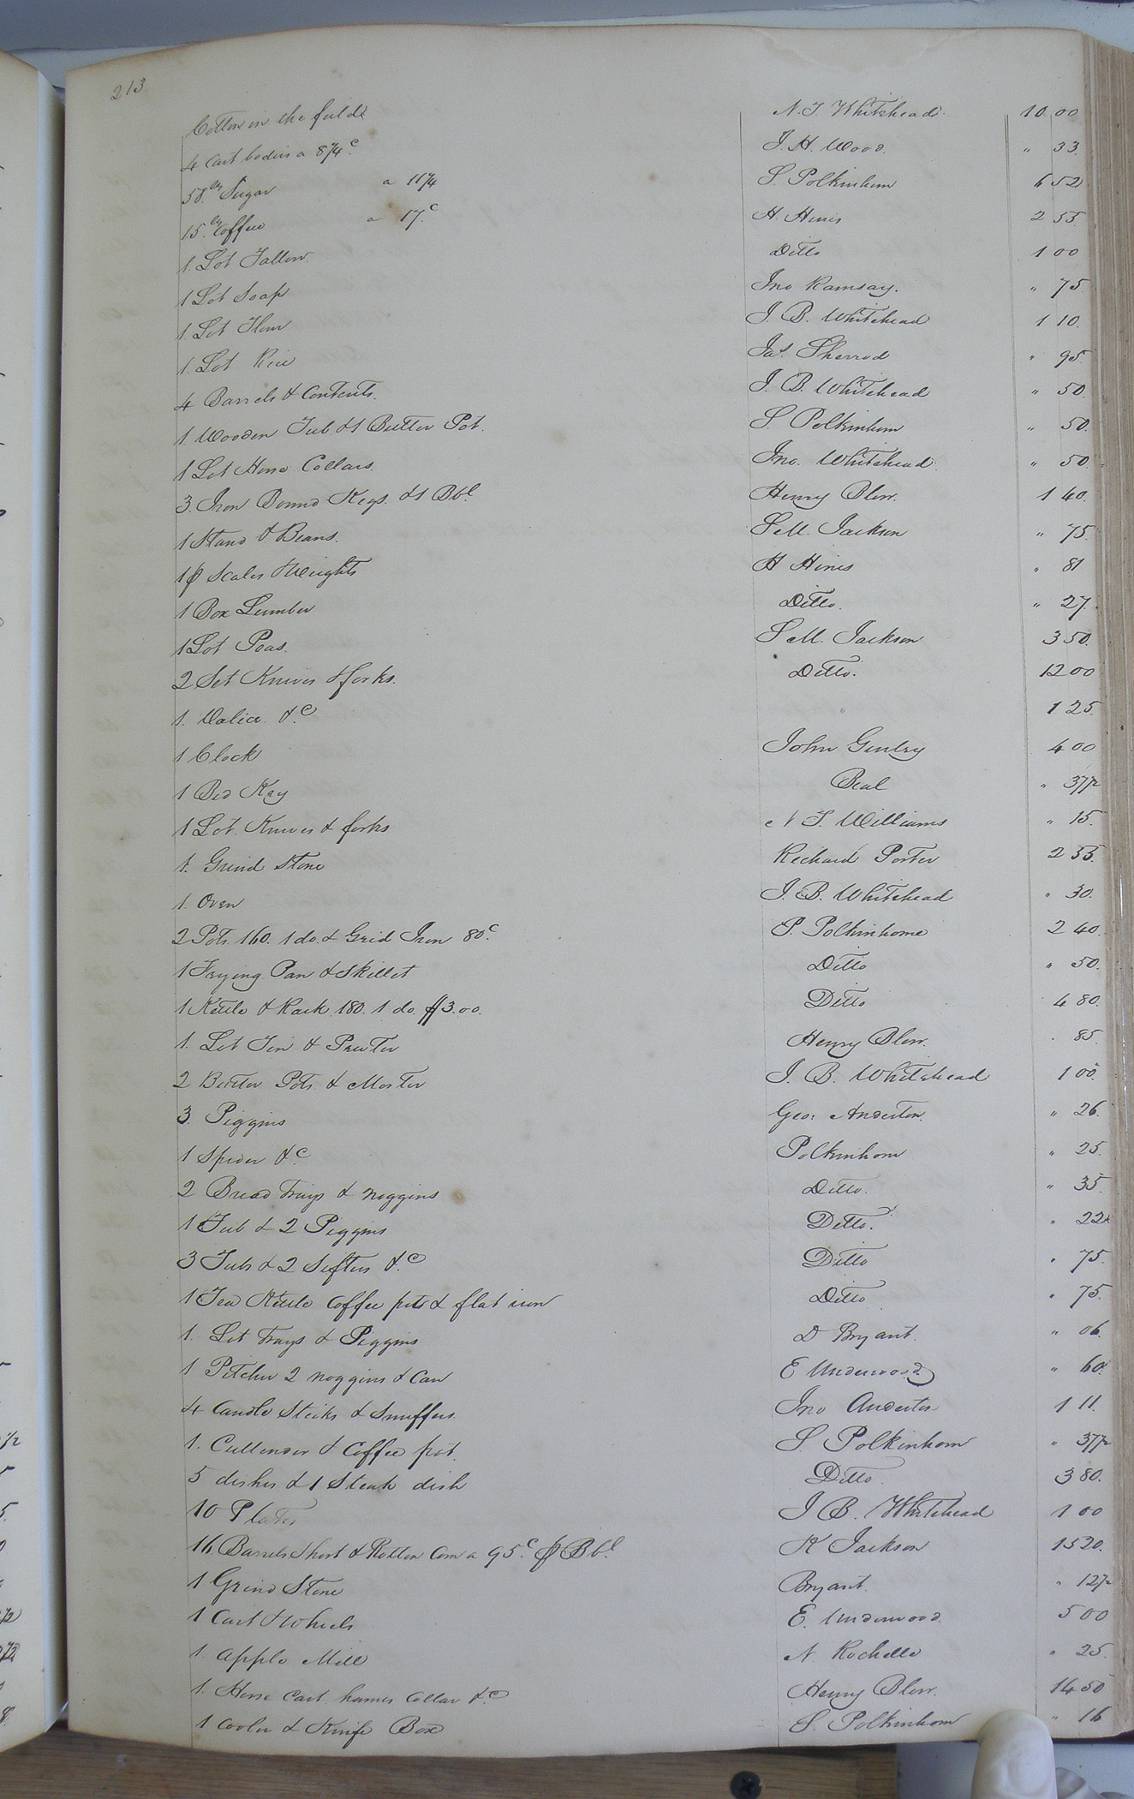 213
Cotton in the field N. T. Whitehead. 10 00
4 Cart bodies a 8¼ c. J. H. Wood. " 33
58. lbs Sugar a 11¼ S. Polkinhorn 6 52
15. lbs Coffee a 17. c H Hines 2 55
1. Lot Tallow. Ditto 1 00
1 Lot Soap Jno Ramsay. " 75
1. Lot Flour J. B. Whitehead 1 10.
1. Lot Rice Jas. Sherrod " 95
4 Barrels & Contents. J. B. Whitehead " 50.
1 Wooden Tub & 1 Butter Pot. S Polkinhorn " 50.
1 Lot Horse Collars. Jno. Whitehead " 50.
3. Iron Bound Kegs. & 1 Bbl Henry Blow. 1 40.
1 Stand & Beans. S. M. Jackson " 75.
1 p Scales & Weights H Hines " 81
1 Box Lumber Ditto. " 27.
1 Lot Peas. S M. Jackson 3 50.
2 Set Knives & forks. Ditto. 12 00
1. Valice &c " 1 25.
1 Clock John Gentry 4 00
1 Bed Key Beal " 37½
1 Lot Knives & forks N T. Williams " 15.
1. Grind Stone Richard Porter 2 55.
1. Oven J. B. Whitehead " 30.
2 Pots 160. 1 do. & Grid Iron 80 c. P. Polkinhorne 2 40.
1 Frying Pan & Skillet Ditto " 50.
1 Kettle & Rack 180. 1 do. $3.00. Ditto 4 80.
1. Lot Tin & Pewter Henry Blow. . 85.
2 Butter Pots & Morter J. B. Whitehead 1 00.
3 Piggins Geo: Anderton. " 26.
1 Spider &c Polkinhorn " 25.
2 Bread trays & noggins Ditto. " 35.
1 Tub & 2 Piggins Ditto. " 22½
3 Tubs & 2 Sifters &c Ditto " 75.
1 Tea Kettle coffee pots & flat iron Ditto " 75.
1. Lot trays & Piggins D Bryant. " 06.
1 Pitcher 2 noggins & Can E Underwood " 60.
4 Candle Sticks & Snuffers. Jno Anderton 1 11.
1. Cullender & Coffee pot. S. Polkinhorn " 37½
5 dishes & 1 Steak dish Ditto. 3 80.
10 Plates J B. Whitehead 1 00
16 Barrels Short & Rotten Corn a 95 c. p Bbl K Jackson 15 20.
1 Grind Stone Bryant. " 12½
1 Cart & Wheels E. Underwood. 5 00
1. Apple Mill N. Rochelle " 25.
1. Horse Cart hames Collar &c Henry Blow. 14 50
1 Cooler & Knife Box S. Polkinhorn " 16